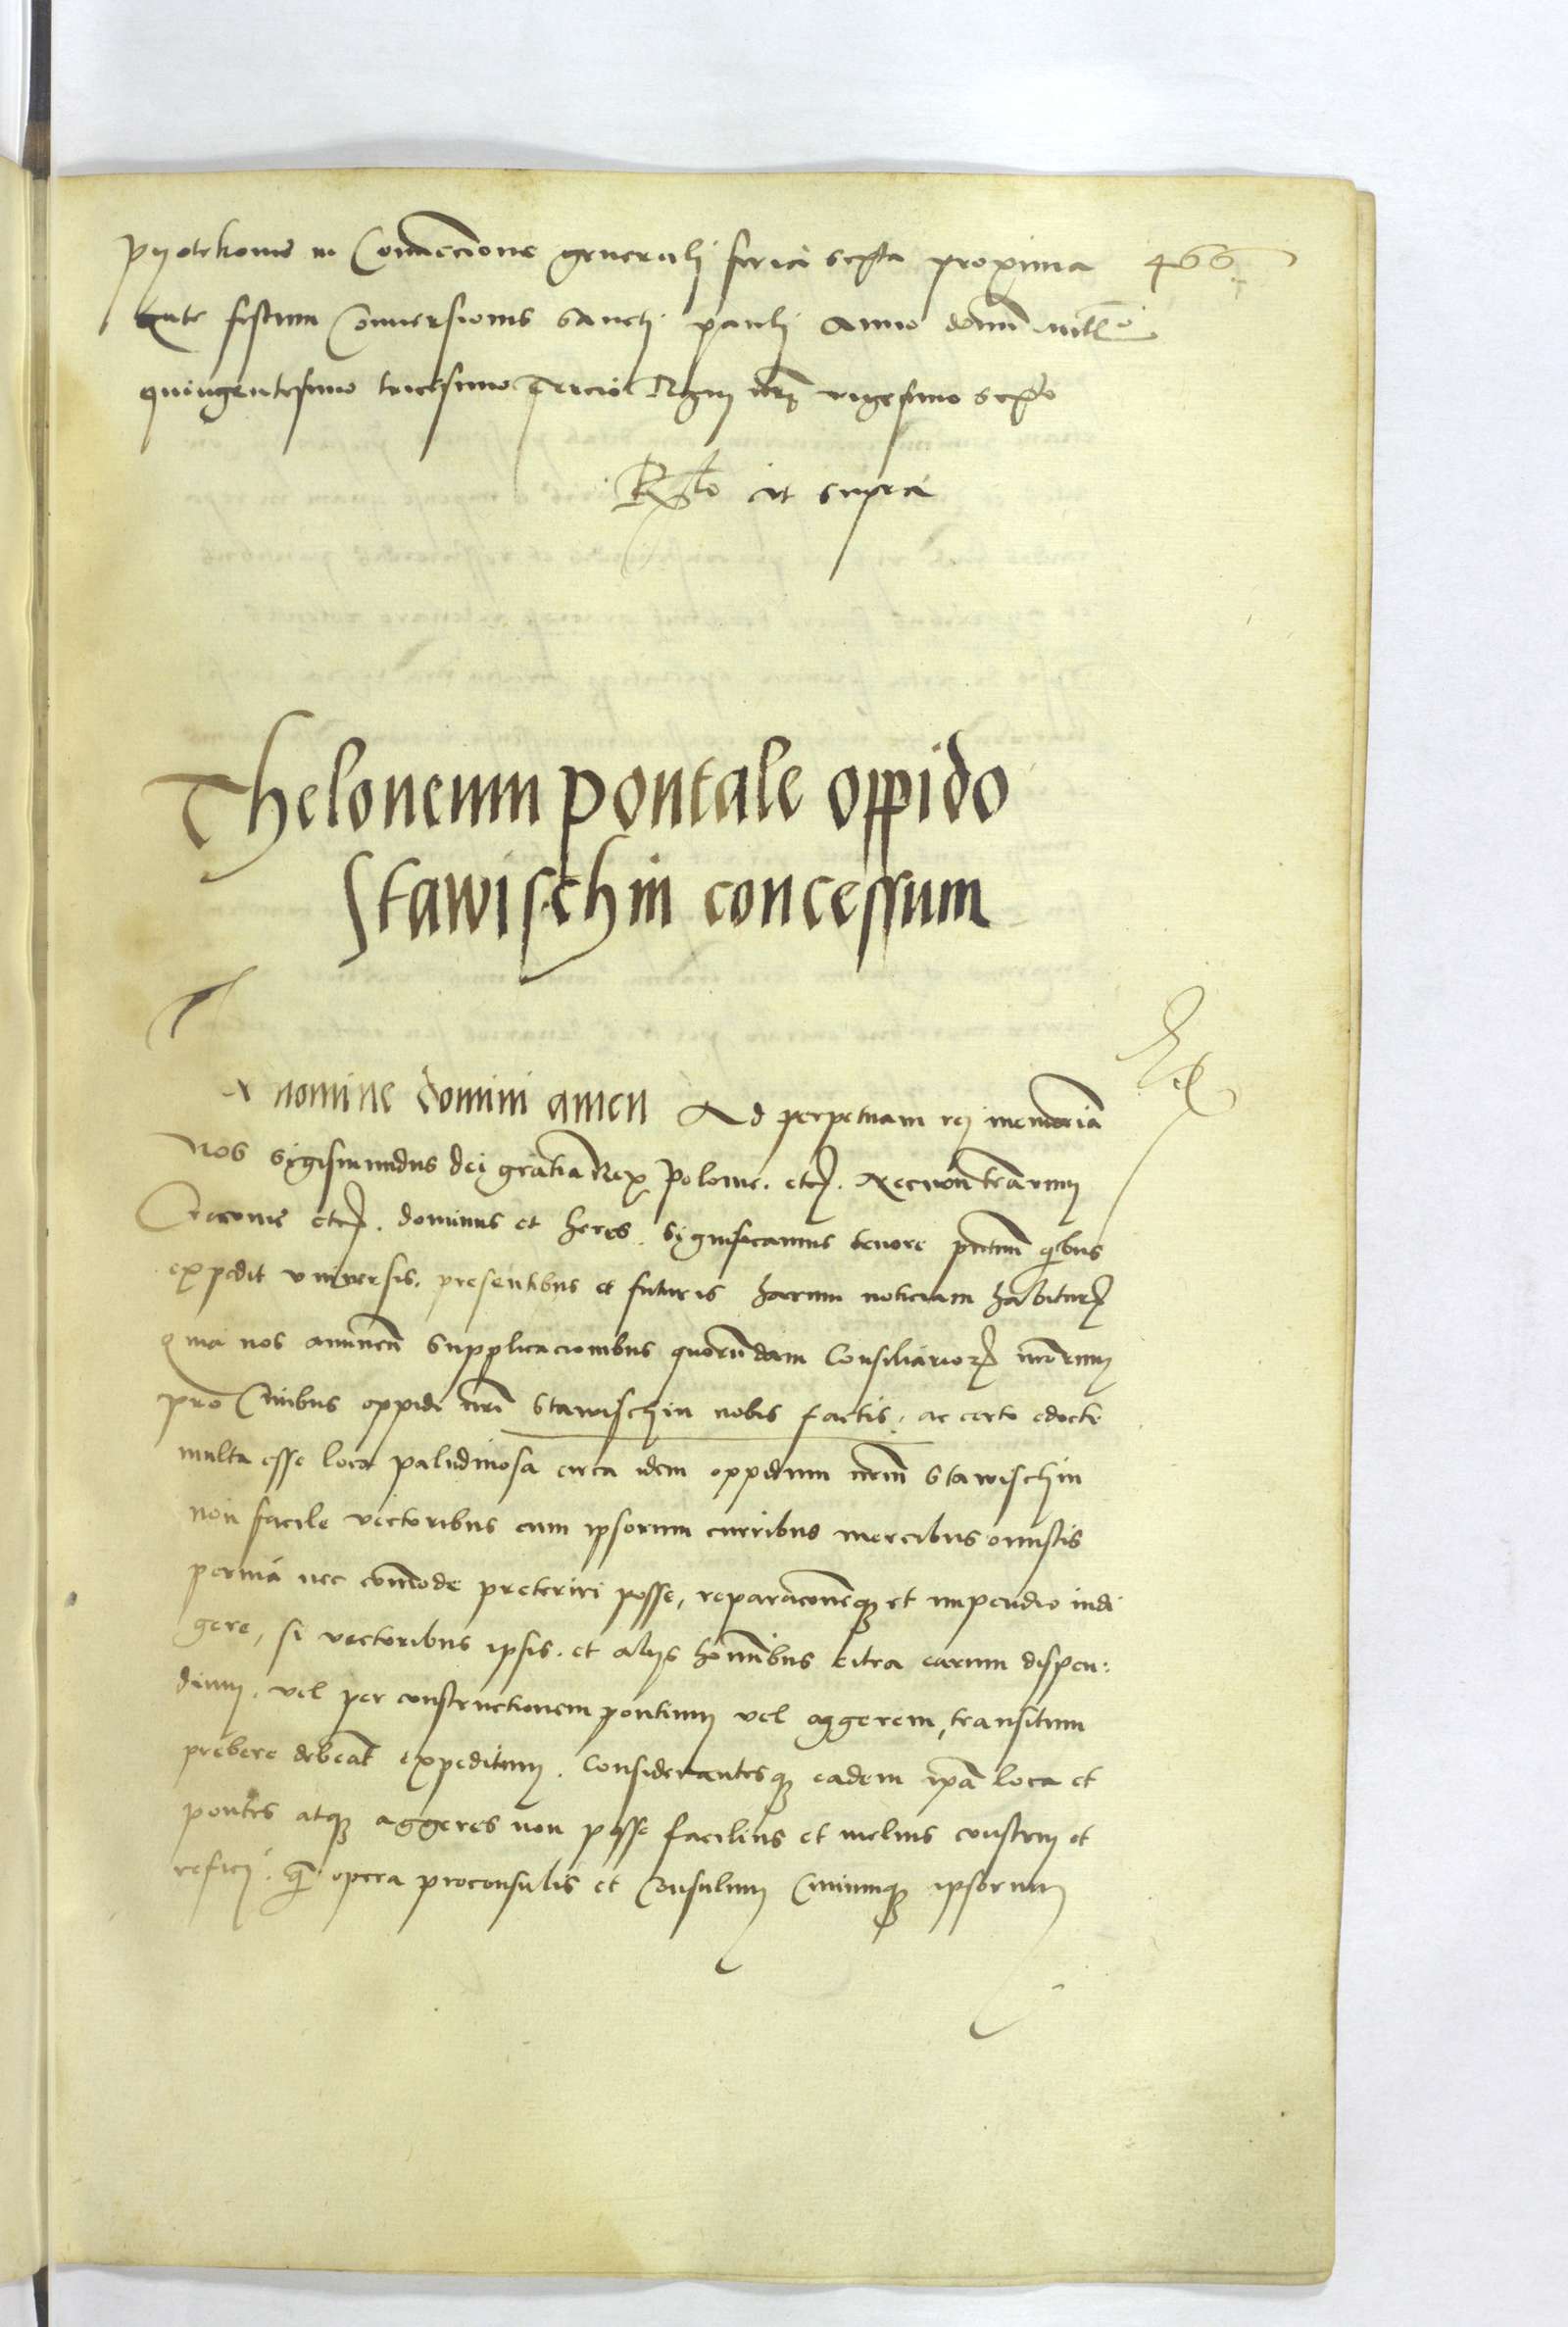 Pyotrkowie in Conuencione generalj feria sexta proxima 466
Ante festum Conuersionis Sanctj paulj Anno domi millo
quingentesimo tricesimo Tercio Regnj nrj vigesimo septo
Relo ut supra
Theloneum pontale oppido
Stawischin concessum
In nomine domini amen Ad perpetuam rej memoriã
Nos Sigismundus dei gratia Rex Polonie. etc. Necnon terarum
Cracouie etc. dominus et heres. Significamus tenore pntium quibus
expedit vniuersis, presentibus et futuris harum noticiam habiturz
quia nos annuen Supplicacionibus quorundam Consiliariorz nrorum
pro Ciuibus oppidi nri Stawischin nobis factis. ac certo edocti
multa esse loca paludinosa circa idem oppidum nrum Stawischin
non facile vectoribus cum ipsorum curribus mercibus onustis
peruia nec comode preteriri posse, reparaconeque et impendio indi
gere, si vectoribus ipsis. et alijs hominibus citra earum dispen:
dium. vel per constructionem pontium vel aggerem, transitum
prebere debeat expeditum. Considerantesque eadem ipa loca et
pontes atque aggeres non posse facilius et melius construj et
reficj. qm opera proconsulis et Consulum Ciuiumque ipsorum